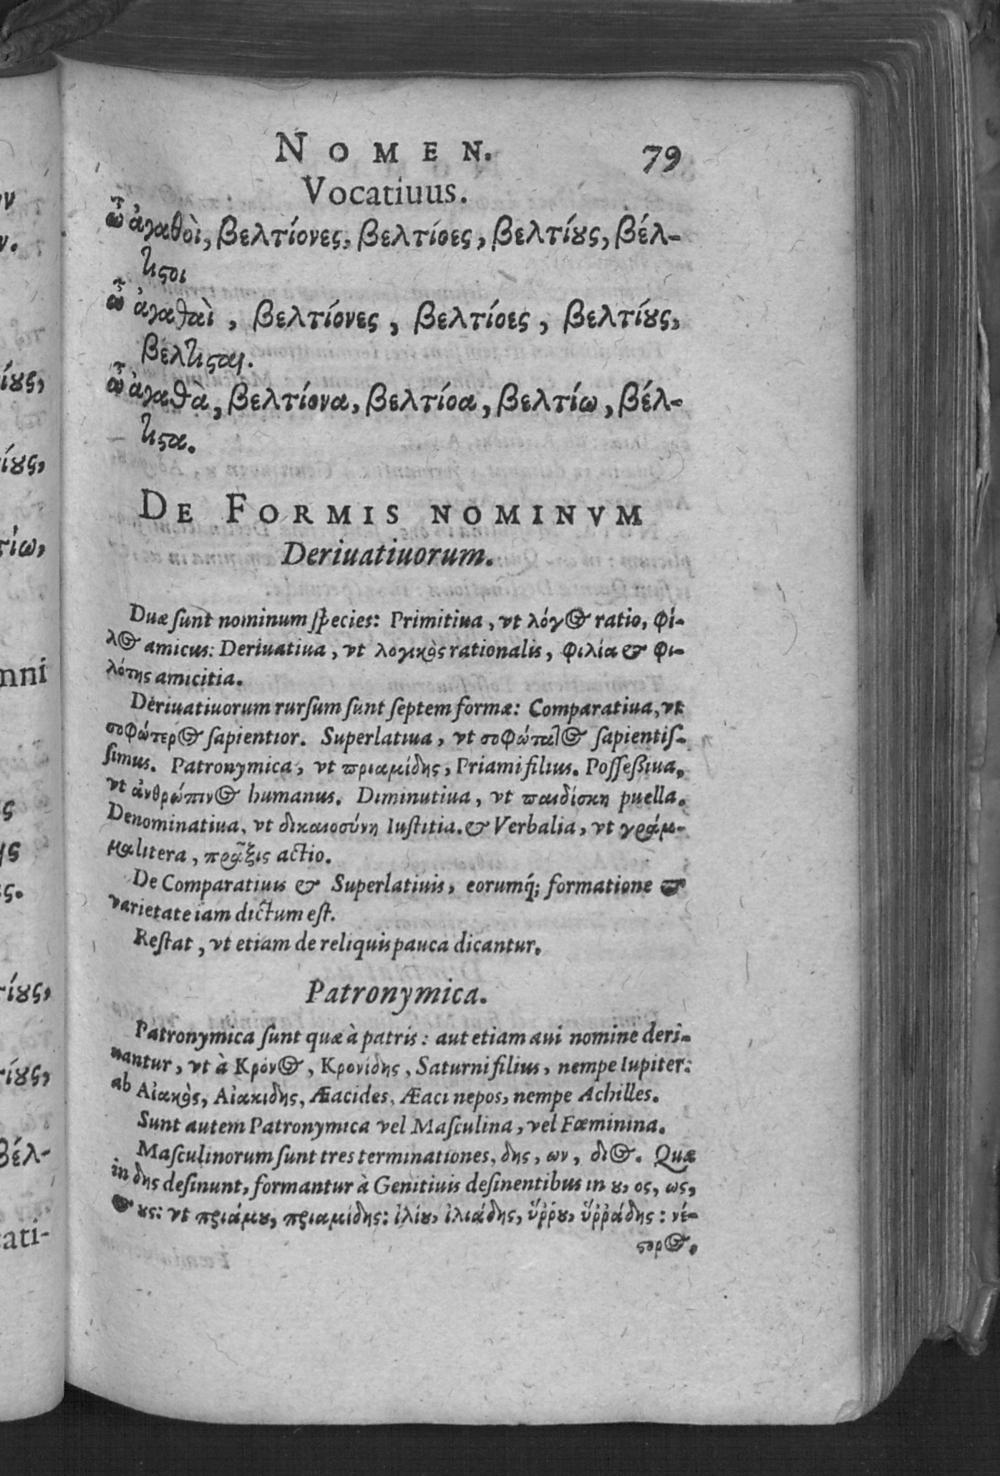 NOMEN. 79
Vocatiuus.
ὦ ἀγαθοὶ, βελτίονες, βελτίοες, βελτίους, βέλ-
τιστοι
ὦ ἀγαθαὶ, βελτίονες, βελτίοες, βελτίους,
βέλτισται.
ὦ ἀγαθὰ, βελτίονα, βελτίοα, βελτίω, βέλ-
τιστα.
DE FORMIS NOMINVM
Deriuatiuorum.
Duæ ſunt nominum ſpecies: Primitiua, vt λόγος ratio, φί-
λος amicus: Deriuatiua, vt λογικὸς rationalis, φιλία & φι-
λότης amicitia.
Deriuatiuorum rurſum ſunt ſeptem formæ: Comparatiua, vt
σοφώτερος ſapientior. Superlatiua, vt σοφώτατος ſapientiſ-
ſimus. Patronymica, vt πριαμίδης, Priami filius. Poſſeßiua,
vt ἀνθρώπινος humanus. Diminutiua, vt παιδίσκη puella.
Denominatiua, vt δικαιοσύνη Iuſtitia. & Verbalia, vt γράμ-
μα litera, πρᾶξις actio.
De Comparatiuis & Superlatiuis, eorumq; formatione &
varietate iam dictum eſt.
Reſtat, vt etiam de reliquis pauca dicantur.
Patronymica.
Patronymica ſunt quæ à patris: aut etiam aui nomine deri-
uantur, vt à Κρόνος, Κρονίδης, Saturni filius, nempe Iupiter:
ab Αἰακὸς, Αἰακιδης, Æacides, Æaci nepos, nempe Achilles.
Sunt autem Patronymica vel Maſculina, vel Fœminina.
Maſculinorum ſunt tres terminationes, δης, ων, διος. Quæ
in δης deſinunt, formantur à Genitiuis deſinentibus in ου, ος, ως,
& ους: vt πριάμου, πριαμίδης: ἰλίου, ἰλιάδης, ὕῤῥου, ὑῤῥάδης: νέ-
στορος.